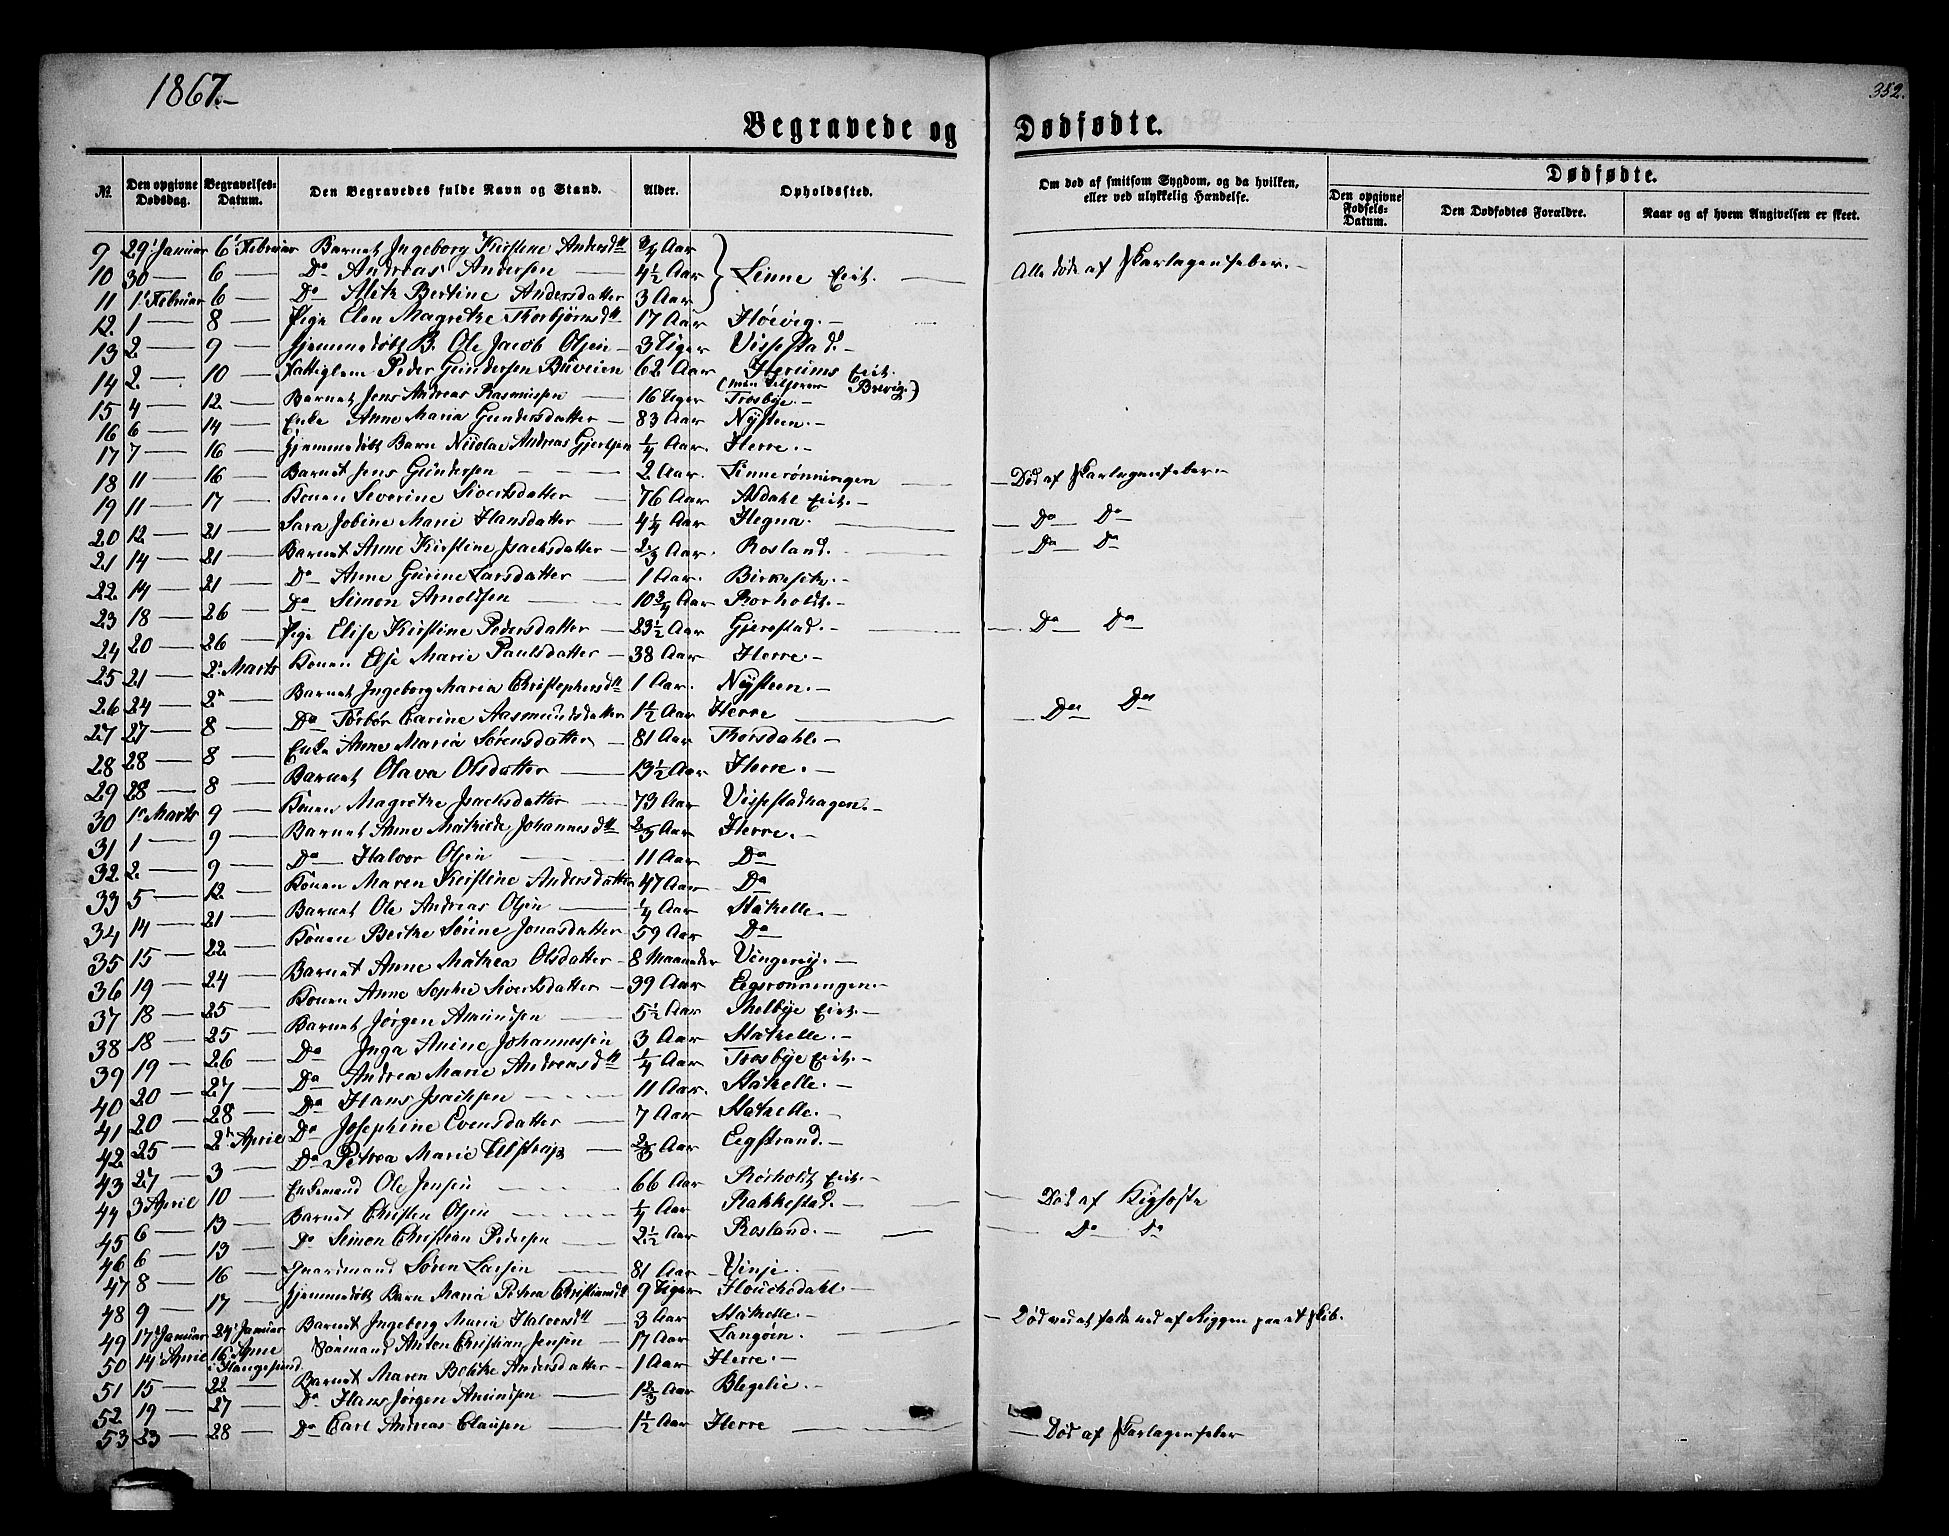 1867.-
352.
Begravede og Dødfødte.
№. Den opgivne Dødsdag. Begravelses-Datum. Den Begravedes fulde Navn og Stand. Alder. Opholdssted. Om død af smitsom Sygdom, og da hvilken, eller ved ulykkelig Hændelse. Dødfødte.
Den opgivne Fødsels-Datum. Den Dødfødtes Forældre. Naar og af hvem Angivelsen er skeet.
9 29' Januar 6' Februar Barnet Ingeborg Kirstine Andersd 3/4 Aar
10 30 — 6 — Do Andreas Andersen — 4 1/2 Aar Linne Eiet. — Alle døde af Skarlagensfeber.-
11 1' Februar 6 — Do Alet Bertine Andersdatter 3 Aar
12 1 — 8 — Pige Elen Magrethe Thorbjørnsd 17 Aar Høivig.-
13 2 — 9 — Hjemmedøbt B. Ole Jacob Olsen - 3 Uger Vissestad.-
14 2 — 10 — Fattiglem Peder Gundersen Buveien 62 Aar Herums Eiet.
( Brevig.)
15 4 — 12 — Barnet Jens Andreas Rasmussen 16 Uger Trosbye.-
16 6 — 14 — Enke Anne Maria Gundersdatter - 83 Aar Nysteen.-
17 7 — 16 — Hjemmedøbt Barn Nicolai Andreas Gjertsen 1/4 Aar. Herre.-
18 11 — 16 — Barnet Jens Gundersen 2 Aar. Linnerønningen — Død af Skarlagensfeber.-
19 11 — 17 — Konen Severine Sivertsdatter — 76 Aar Asdahl Eiet.-
20 12 — 21 — Sara Jobine Marie Hansdatter — 4 1/4 Aar Hegna. — Do Do
21 14 — 21 — Barnet Anne Kirstine Isachsdatter - 2/3 Aar. Rosland. — Do Do
22 14 — 21 — Do Anne Gurine Larsdatter — 1 Aar. Birkesæt.-
23 18 — 26 — Do Simon Arnoldsen — 10 3/4 Aar Rorholdt.-
24 20 — 26 — Pige Elise Kirstine Pedersdatter - 23 1/2 Aar Gjerestad.- — Do Do
25 21 — 2' Marts Konen Else Marie Paulsdatter - 38 Aar Herre.-
26 24 — 2 — Barnet Ingeborg Maria Christophersd 1 Aar. Nysteen.-
27 27 — 8 — Do Torbor Carine Aasmundsdatter 1 1/2 Aar Herre — Do Do
28 28 — 8 — Enke Anne Maria Sørensdatter - 81 Aar Thorsdahl.-
29 28 — 8 — Barnet Olava Olsdatter — 13 1/2 Aar Herre.-
30 1' Marts 9 — Konen Magrethe Isachsdatter — 73 Aar Vissestadhagen.-
31 1 — 9 — Barnet Anne Mathilde Johannesd 2/3 Aar Herre.-
32 2 — 9 — Do Halvor Olsen — 11 Aar Do
33 5 — 12 — Konen Maren Kirstine Andersdatter 47 Aar Do
34 14 — 21 — Barnet Ole Andreas Olsen — 1/4 Aar Stathelle.-
35 15 — 22 — Konen Berthe Sørine Jonasdatter 59 Aar Do
36 19 — 24 — Barnet Anne Mathea Olsdatter - 8 Maaneder Vingereij.-
37 18 — 25 — Konen Anne Sophie Sivertsdatter - 39 Aar Eegsrønningen.-
38 18 — 25 — Barnet Jørgen Amundsen — 5 1/2 Aar Skelbye Eiet.-
39 19 — 26 — Do Inga Anine Johannessen 3 Aar Stathelle.-
40 20 — 27 — Do Andrea Marie Andreasd 1/4 Aar Trosbye Eiet.-
41 20 — 28 — Do Hans Isachsen — 11 Aar. Stathelle.-
42 25 — 2' April Do Josephine Evensdatter — 7 Aar Stathelle.-
43 27 — 3 — Do Petrea Marie 2/3 Aar Eegstrand.-
44 3 April 10 — Enkemand Ole Jensen — 66 Aar Rorholdt Eiet.-
45 6 — 13 — Barnet Christen Olsen — 1/4 Aar Rakkestad.- — Død af Kighoste
46 6 — 13 — Do Simon Christian Pedersen — 2 1/2 Aar Rosland.- — Do Do
47 8 — 16 — Søren Larsen — 81 Aar Vinje.-
48 9 — 17 — Hjemmedøbt Barn Maria Petrea Christiansd 9 Uger
49 17' Januar 24' Januar Barnet Ingeborg Maria Halvorsd 3 Aar Stathelle.- — Død ved at falde ned af Riggen paa et Skib.
50 14' April 16' April i Haugesund Sømand Anton Christian Jensen — 17 Aar Langøen.
51 15 — 22 — Barnet Maren Bolethe Andersdatter - 1 Aar Herre.-
52 19 — 27 — Do Hans Jørgen Amundsen — 1 2/3 Aar Blegelie.-
53 23 — 28 — Do Carl Andreas Clausen — 1 1/2 Aar Herre — Død af Skarlagensfeber